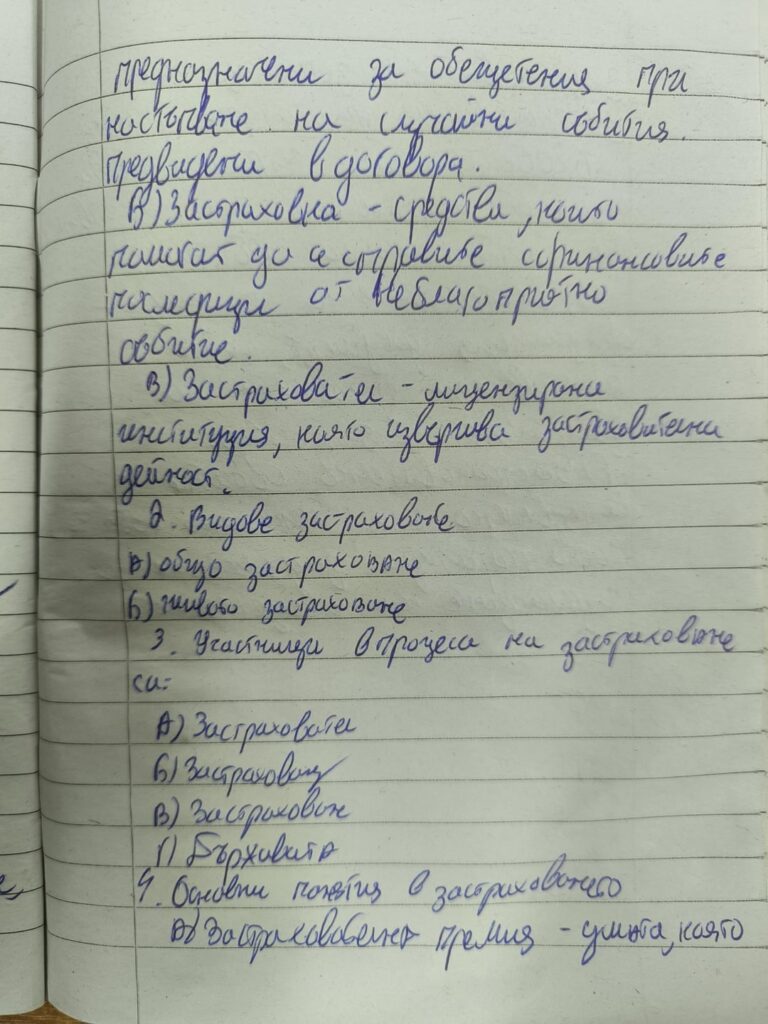 предназначени за обещетения при
настъпване на случайни събития.
предвидени в договора.
В) Застраховка - средства, които
помагат да се справите с финансовите
последици от неблагоприятно
събитие.
В) Застраховател - лицензирана
институция, която извършва застрахователна
дейност.
2. Видове застраховане
А) общо застраховане
Б) живото застраховане
3. Участници в процеса на застраховане
са:
А) Застраховател
Б) Застраховащ
В) Застрахован
Г)
4. Основни понятия в застраховането
А) Застрахователна премия - сумата, която